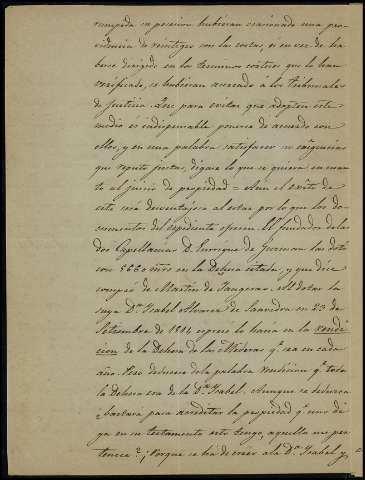 rumpida su posesion hubieran ocasionado una pro-
videncia de reintegro con las costas, si en vez de ha-
berse dirigido en los terminos corteses que lo han
verificado, se hubieran acercado á los tribunales
de Justicia. Que para evitar que adopten este
medio es indispensable ponerse de acuerdo con
ellos, y en una palabra satisfacer sus exigencias
que reputo justas, digase lo que se quiera en cuan-
to al juicio de propiedad = Aun el exito de
este será desventajoso al estar por lo que los do-
cumentos del espediente ofrecen. El fundador de las
dos Capellanias D. Enrique de Guzman las dotó
con 5660 mrs en la Dehesa citada, y que dice
compró de Martin de Al dotar la
suya D.ª Isabel Alvarez de Saavedra en 23 de
Setiembre de espresó lo hacia en la rendi-
cion de la Dehesa de las q.e sea en cada
año. Pero deducese de la palabra rendicion q.e toda
la Dehesa era de la D.ª Isabel. Aunque se dedujera
¿bastará para acreditar la propiedad q.e uno di-
ga en su testamento esto tengo, aquello me per-
tenece?; Porque se ha de creer á la D.ª Isabel y